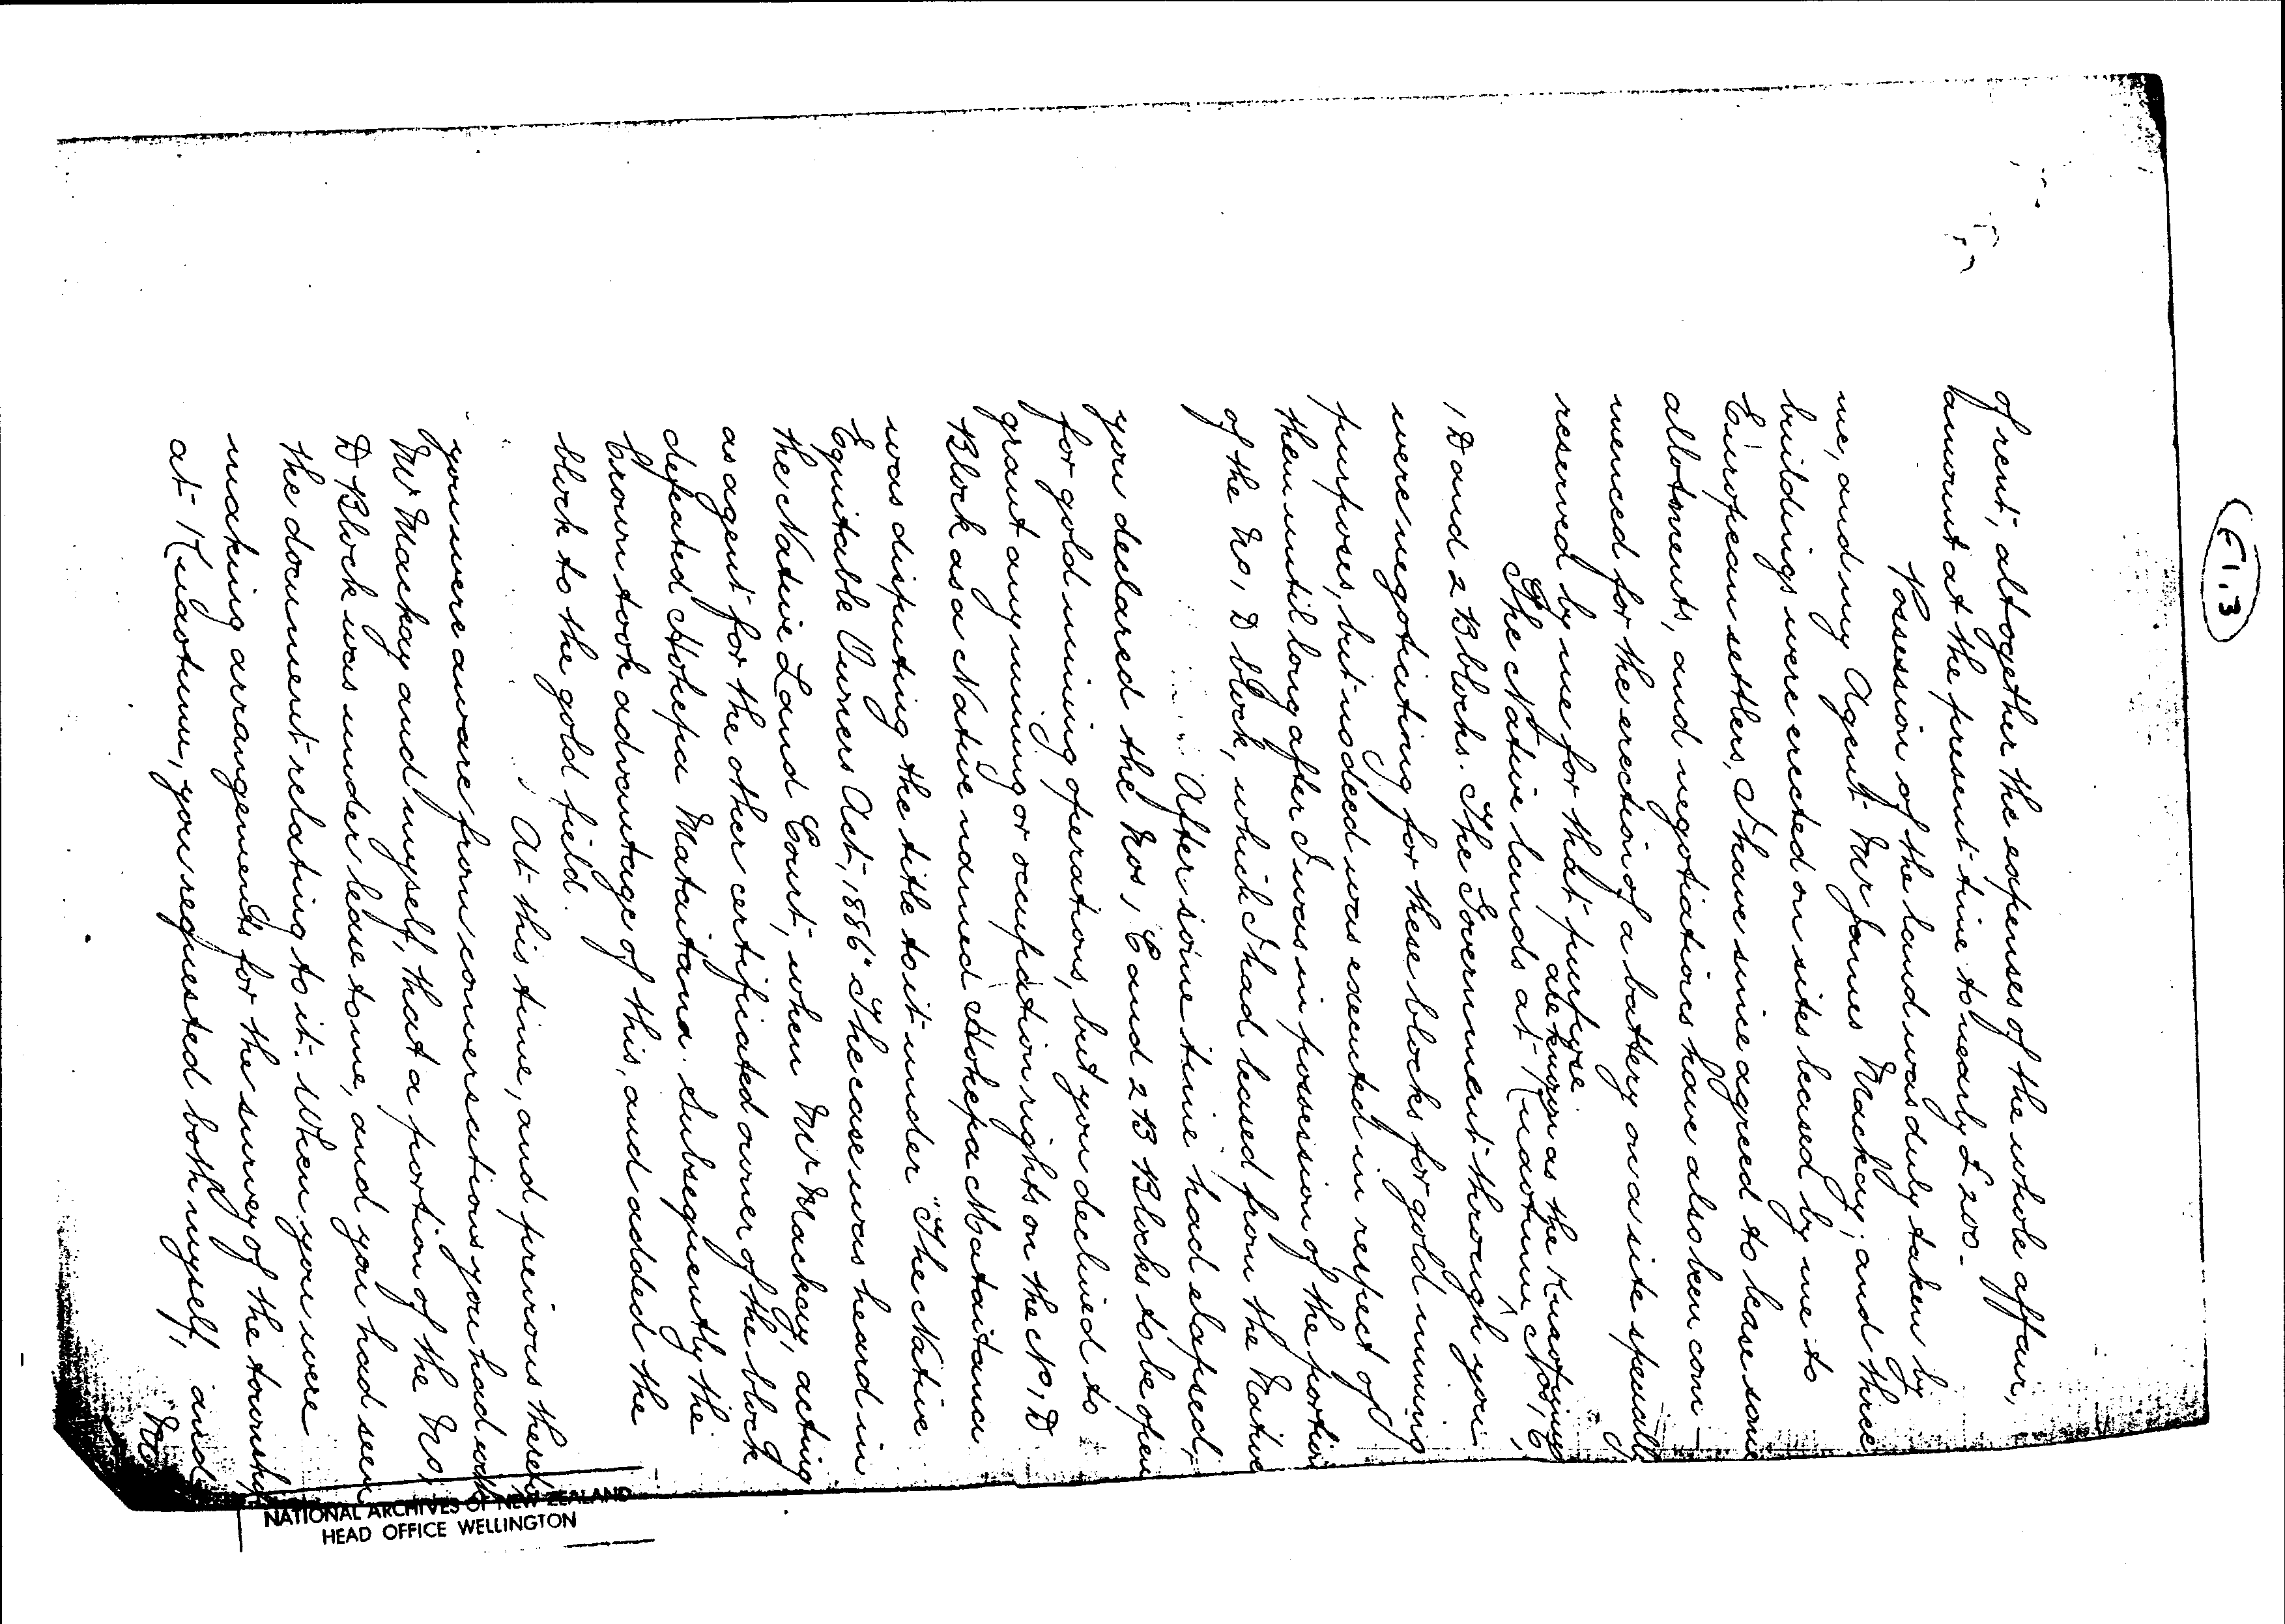 E1.3
of rent, altogether the expenses of the whole affair,
amount at the present time to nearly £200 -
Possession of the land was duly taken by
me, and my Agent Mr James Mackay, and three
buildings were erected on sites leased by me to
European settlers, I have since agreed to lease some
allotments, and negotiations have also been com -
menced for the erection of a battery on a site specially
reserved by me for that purpose
are known as the Kuaotunu
The Native lands at Kuaotunu Nos, 1 C,
1 D and 2 B blocks. The Government through you
were negotiating for these blocks for gold mining
purposes, but no deed was executed in respect of
them until long after I was in possession of the portion
of the No 1 D block, which I had leased from the Native
After some time had elapsed,
you declared the Nos 1 C and 2 B Blocks to be open
for gold mining operations, but you declined to
grant any mining or occupation rights on the No 1 D
Block as a Native named Hohepa Mataitaua
was disputing the title to it under "The Native
Equitable Owners Act, 1886" The case was heard in
the Native Land Court, when Mr Mackay, acting
as agent for the other certificated owner of the block
defeated Hohepa Mataitaua. Subsequently the
Crown took advantage of this, and added the
block to the gold field.
At this time, and previous thereto
you were aware from conversations you had with
Mr Mackay and myself, that a portion of the No 1
D Block was under lease to me, and you had seen
the document relating to it. When you were
making arrangements for the survey of the township
at Kuaotunu, you requested both myself, and
Mr
NATIONAL ARCHIVES OF NEW ZEALAND
HEAD OFFICE WELLINGTON